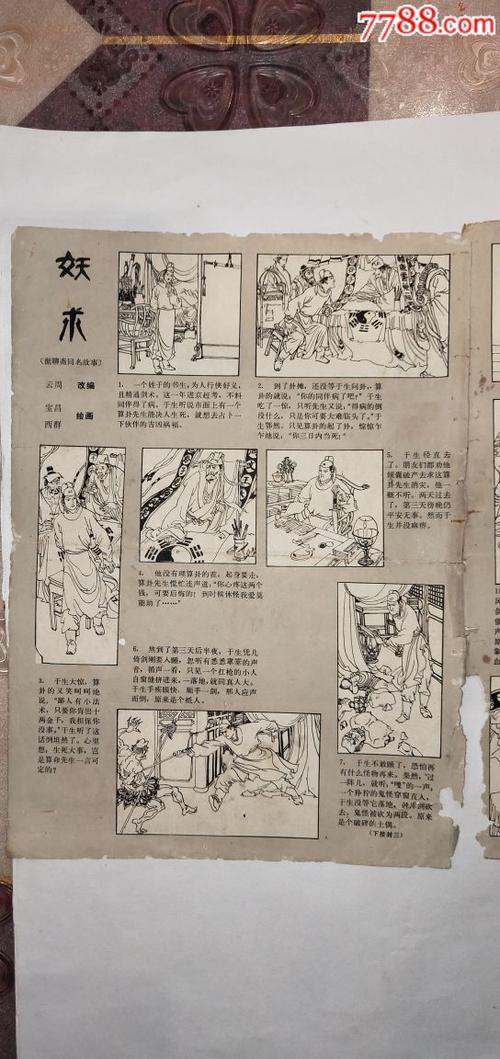 7788.com
妖术
(据聊斋同名故事)
云周 改编
宝昌
西群
绘画
1. 一个姓于的书生,为人行侠好义,
且精通剑术。这一年进京赶考,不料
同伴得了病。于生听说市面上有一个
算卦先生能决人生死,就想去占卜一
下伙伴的吉凶祸福。
2. 到了卦摊,还没等于生问卦,算
卦的就说:“你的同伴病了吧?”于生
吃了一惊,只听先生又说:“得病的倒
没什么,只是你可要大难临头了。”于
生愕然。只算卦的起了卦,惊惊乍
乍地说:“你三日内当死!”
3. 于生大惊,算
卦的又笑呵呵地
说:“鄙人有小法
术,只要你肯出十
两金子,我担保你
没事。”于生听了这
话倒坦然了,心里
想:生死大事,岂
是算命先生一言可
定的?
4. 他没有理算卦的茬,起身要走,
算卦先生慌忙连声道:“你心疼这两个
钱,可要后悔的!到时候休怪我爱莫
能助了……”
5. 于生径直去
了。朋友们都劝他
倾囊破产去求这算
卦先生消灾,他一
概不听。两天过去
了,第三天傍晚仍
平安无事。然而于
生并没麻痹。
6. 熬到了第三天后半夜,于生凭几
倚剑刚要入睡,忽听有悉悉窣窣的声
音,循声一看,只见一个扛枪的小人
自窗缝挤进来,一落地,就同真人大。
于生手疾眼快,顺手一剑,那人应声
而倒,原来是个纸人。
7. 于生不敢睡了,恐怕再
有什么怪物再来。果然,过
一阵儿,就听“嗖”的一声,
一个狰狞的鬼怪穿窗直入,
于生没等它落地,就挥剑砍
去;鬼怪被砍为两段。原来
是个破碎的土偶。
(下接封三)